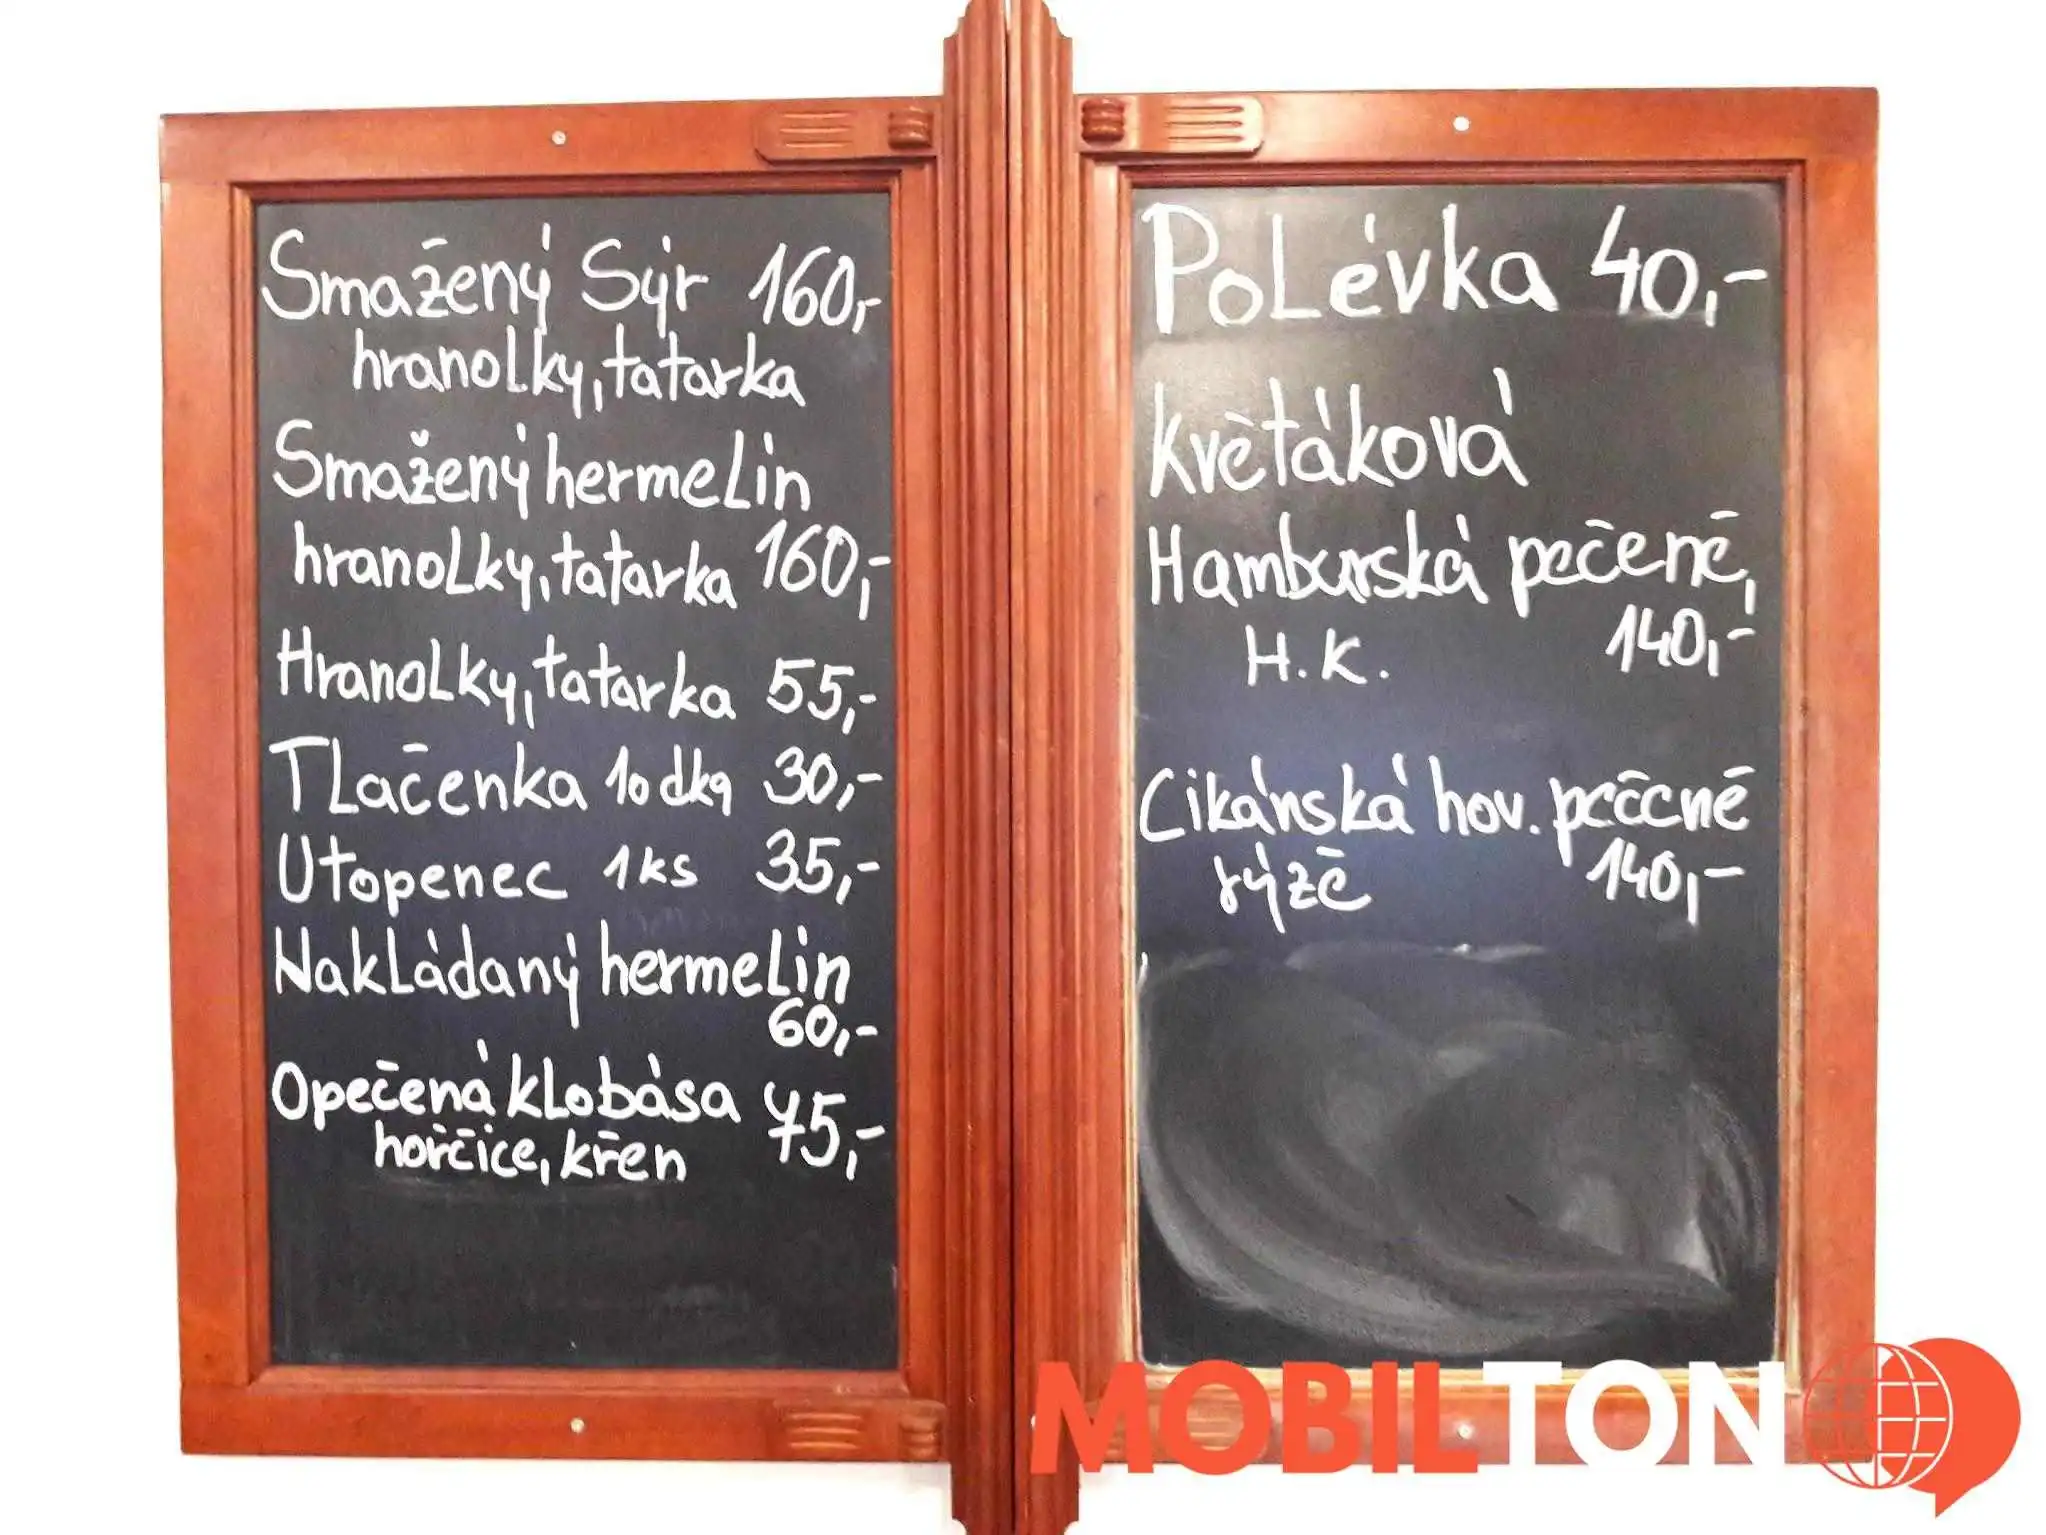 Smažený Sýr 160,-
hranolky, tatarka
Smažený hermelin
hranolky, tatarka 160,-
Hranolky, tatarka 55,-
Tlačenka 10dkg 30,-
Utopenec 1ks 35,-
Nakládaný hermelin
60,-
Opečená klobása 75,-
hořčice, křen
Polévka 40,-
Květáková
Hamburská pečeně,
H.K. 140,-
Cikánská hov. pečeně
rýže 140,-
MOBILTON